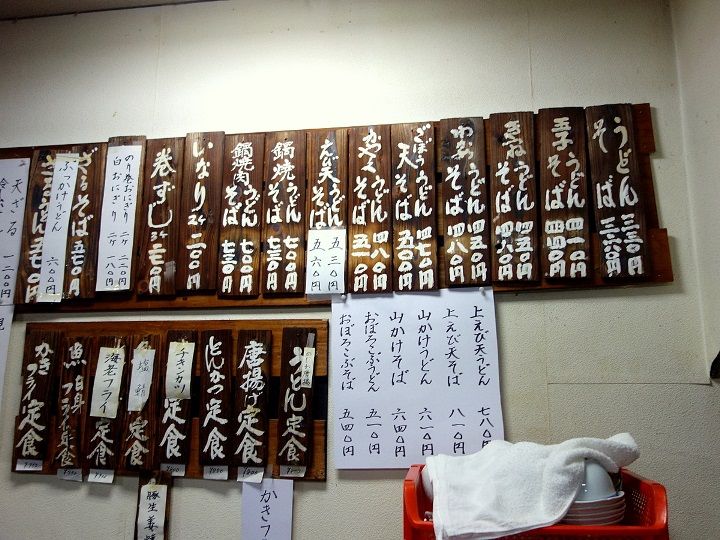 うどん 三三〇円
そば 三六〇円
玉子
うどん 四一〇円
そば 四四〇円
きつね
うどん 四三〇円
そば 四六〇円
わかめ
うどん 四五〇円
そば 四八〇円
ごぼう天
うどん 四七〇円
そば 五〇〇円
かやく
うどん 四八〇円
そば 五一〇円
えび天
うどん 五三〇円
そば 五六〇円
鍋焼
うどん 七〇〇円
そば 七三〇円
鍋焼肉
うどん
そば
いなり 二ケ 二〇〇円
巻ずし 三ケ 二七〇円
のり巻おにぎり 二ケ 二二〇円
白おにぎり 二ケ 一八〇円
ざるそば 五七〇円
ぶっかけうどん 六〇〇円
ざるうどん 五七〇円
天ざる 一二〇〇円
上えび天うどん 七八〇円
上えび天そば 八一〇円
山かけうどん 六一〇円
山かけそば 六四〇円
おぼろこぶうどん 五一〇円
おぼろこぶそば 五四〇円
うどん定食
唐揚げ定食
とんかつ定食
チキンカツ
定食
塩鯖
定食
海老フライ
定食
魚白身フライ定食
かきフライ定食
豚生姜焼
かきフ